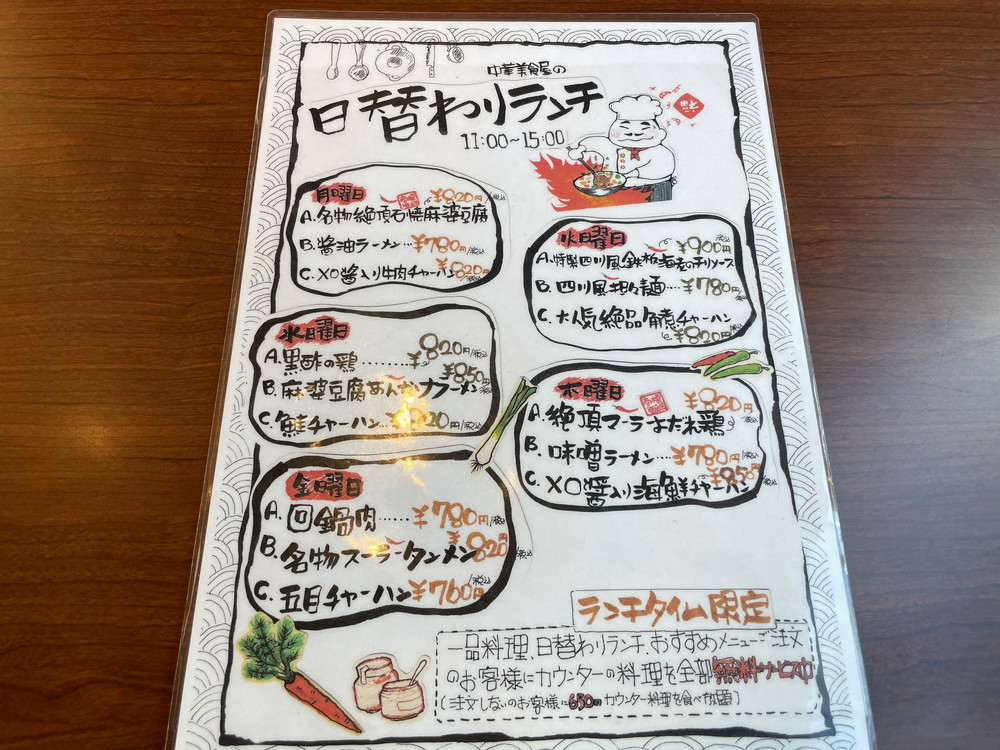 中華美食屋の
日替わりランチ
11:00~15:00
福
月曜日
¥820円/税込
A.名物絶頂石焼麻婆豆腐
B.醤油ラーメン…¥780円/税込
C.XO醤入り牛肉チャーハン ¥820円/税込
火曜日
¥900円/税込
A.特製四川風鉄板海老のチリソース
B.四川風担々麺……¥780円/税込
C.大人気絶品角煮チャーハン
¥820円/税込
水曜日
A.黒酢の鶏………¥820円/税込
¥850円/税込
B.麻婆豆腐あんかけラーメン
C.鮭チャーハン…¥820円/税込
木曜日
¥820円/税込
A.絶頂マーラーよだれ鶏
B.味噌ラーメン…¥780円/税込
C.XO醤入り海鮮チャーハン ¥850円/税込
金曜日
A.回鍋肉……¥780円/税込
B.名物スーラータンメン ¥820円/税込
C.五目チャーハン ¥760円/税込
ランチタイム限定
一品料理、日替わりランチ、おすすめメニューご注文
のお客様にカウンターの料理を全部無料サービス
(注文しないのお客様に650円カウンター料理を食べ放題)